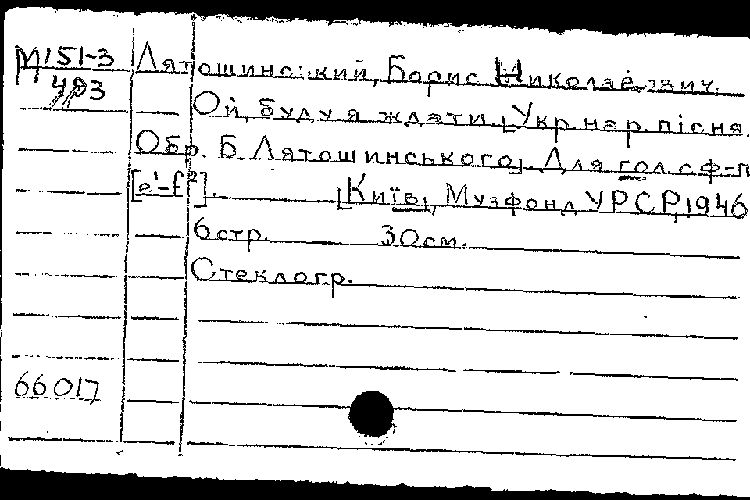 М 151-3 Лятошинський, Борис Николаевич.
493
Ой, буду я ждати. [Укр. нар. пісня.
Обр. Б. Лятошинського]. Для гол. с ф-п
[e¹-f²]. [Київ], Музфонд УРСР, 1946
6 стр. 30 см.
Стеклогр.
66017